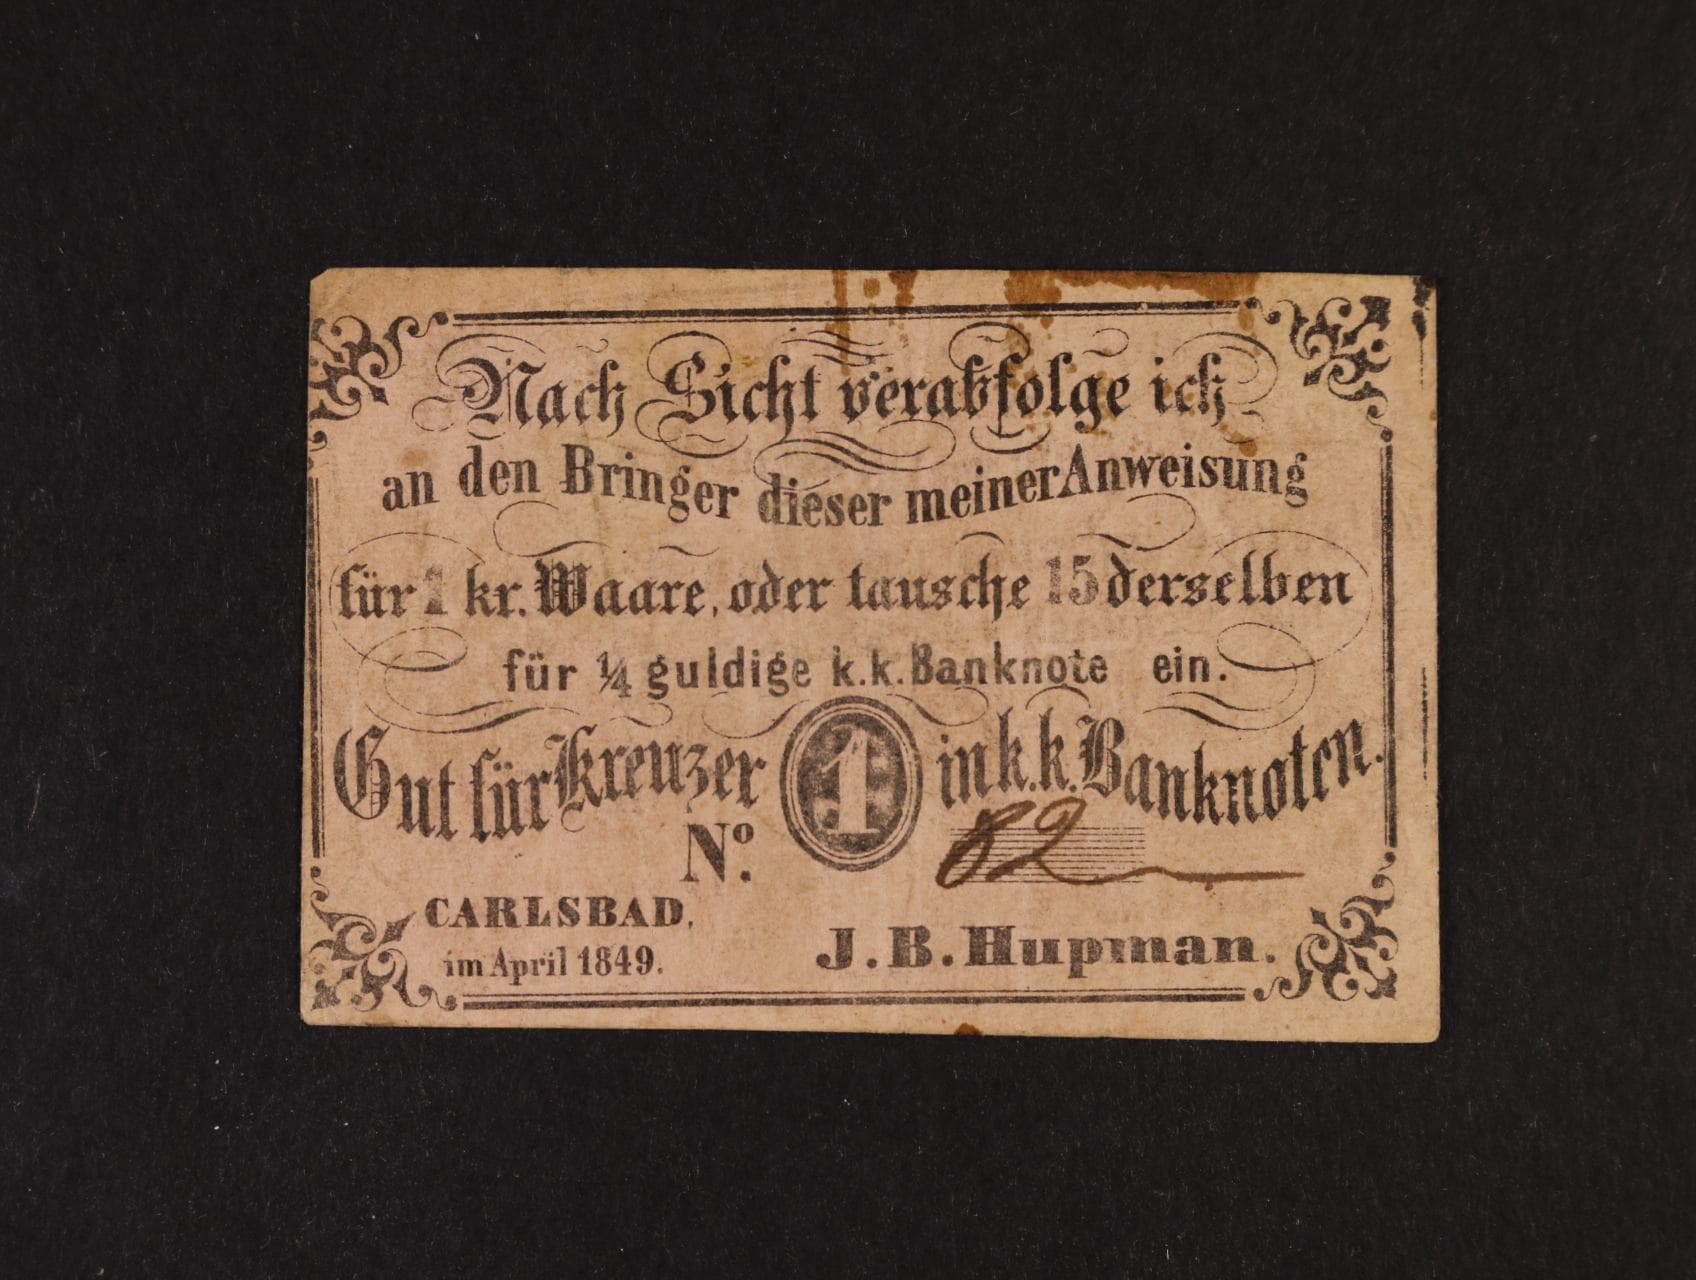 Nach Sicht verabfolge ich
an den Bringer dieser meiner Anweisung
für 1 kr. Waare, oder tausche 15 derselben
für ¼ guldige k.k. Banknote ein.
Gut für Kreuzer 1 in k.k. Banknoten.
No. 82
CARLSBAD,
im April 1849.
J. B. Hupman.